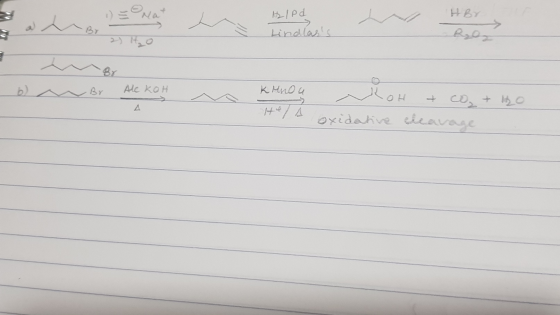 a) Br 1) ≡⊖Na⁺ 2) H₂O H₂/Pd Lindlar's HBr R₂O₂
Br
b) Br Alc KOH Δ KMnO₄ H⁺/Δ O OH + CO₂ + H₂O
oxidative cleavage